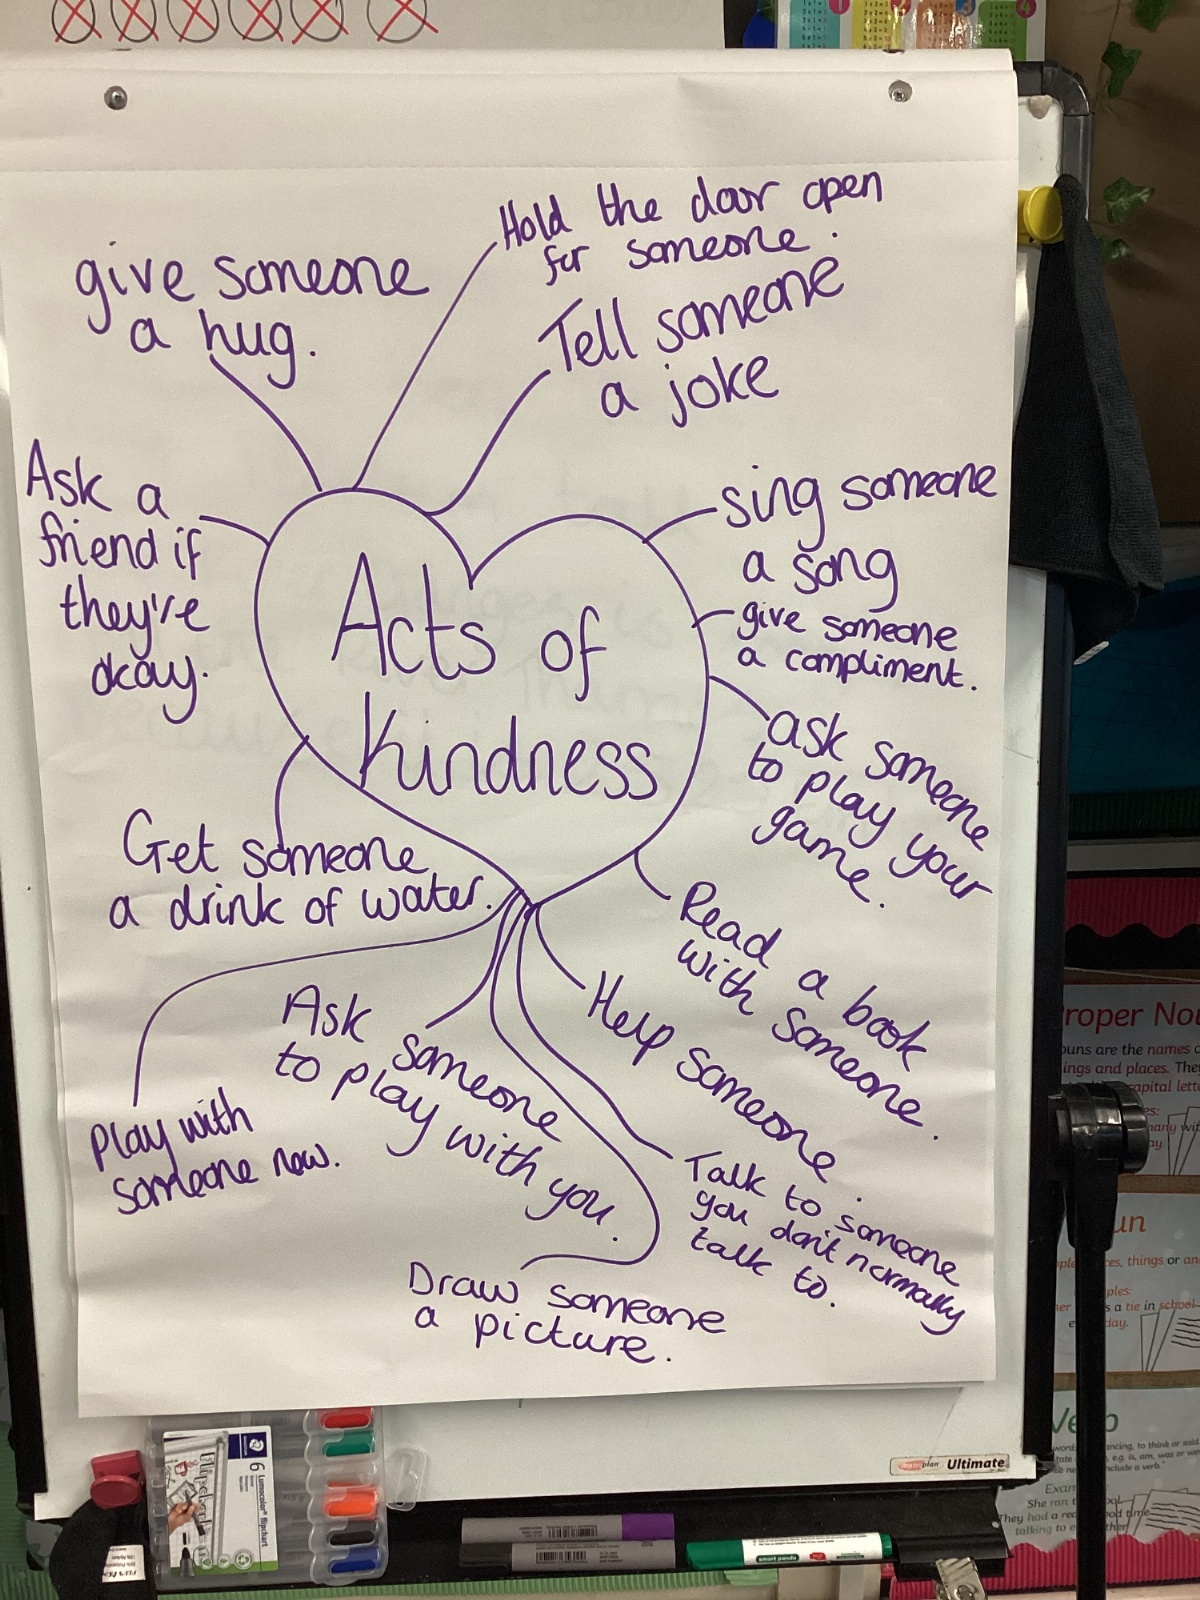 Hold the door open
for someone.
give someone
a hug.
Tell someone
a joke
Ask a
friend if
they're
okay.
sing someone
a song
give someone
a compliment.
Acts of
Kindness
ask someone
to play your
game.
Get someone
a drink of water.
Read a book
with someone.
Help someone.
Ask someone
to play with you.
Play with
someone new.
Talk to someone
you don't normally
talk to.
Draw someone
a picture.
1
2
3
4
roper Nou
ings and places. The
capital lett
un
ces, things or an
ples:
s a tie in school
day.
Verb
Exam
She ran t
They had a rea
talking to e
STAEDTLER
6 Lumocolor® flipchart
metroplan Ultimate
smart panda